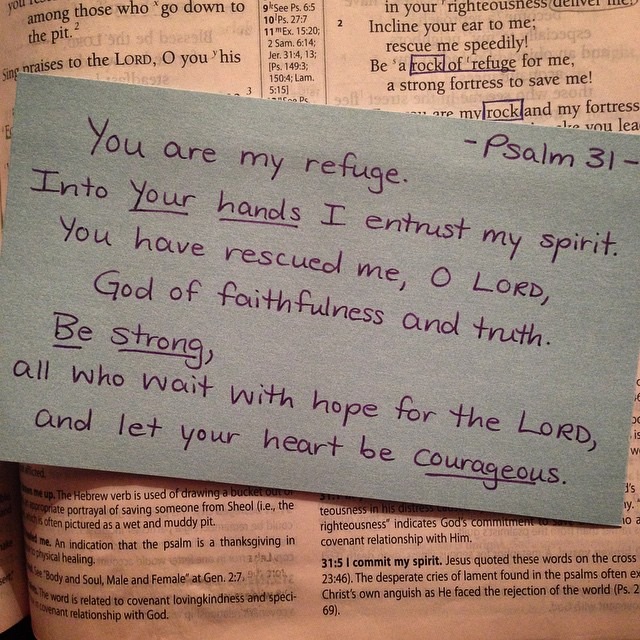 among those who x go down to
the pit. 2
Sing praises to the LORD, O you y his
9 k See Ps. 6:5
10 l Ps. 27:7
11 m Ex. 15:20;
2 Sam. 6:14;
Jer. 31:4, 13;
[Ps. 149:3;
150:4; Lam.
5:15]
in your r righteousness deliver me!
2 Incline your ear to me;
rescue me speedily!
Be s a rock of t refuge for me,
a strong fortress to save me!
3
are my rock and my fortress
you lea
-Psalm 31-
You are my refuge.
Into your hands I entrust my spirit.
You have rescued me, O LORD,
God of faithfulness and truth.
Be strong,
all who wait with hope for the LORD,
and let your heart be courageous.
me up. The Hebrew verb is used of drawing a bucket out of
appropriate portrayal of saving someone from Sheol (i.e., the
is often pictured as a wet and muddy pit.
me. An indication that the psalm is a thanksgiving in
physical healing.
See "Body and Soul, Male and Female" at Gen. 2:7.
The word is related to covenant lovingkindness and speci-
covenant relationship with God.
teousness in his distress
righteousness" indicates God's commitment to
covenant relationship with Him.
31:5 I commit my spirit. Jesus quoted these words on the cross
23:46). The desperate cries of lament found in the psalms often ex
Christ's own anguish as He faced the rejection of the world (Ps. 2
69).